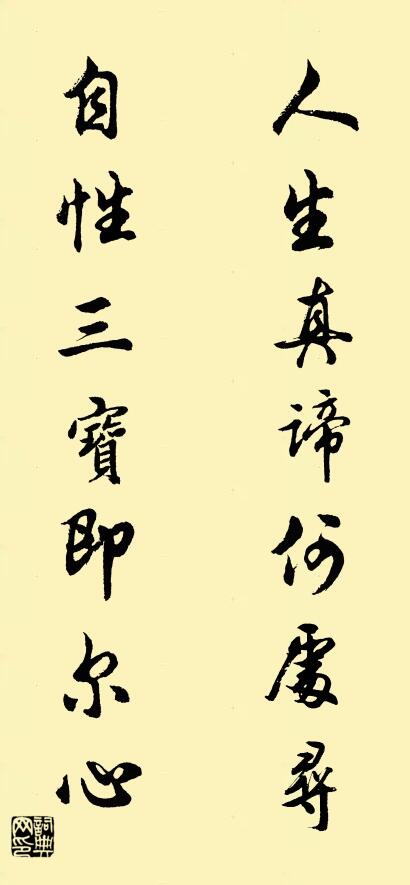 人生真諦何處尋
自性三寶即尔心
詞典網印